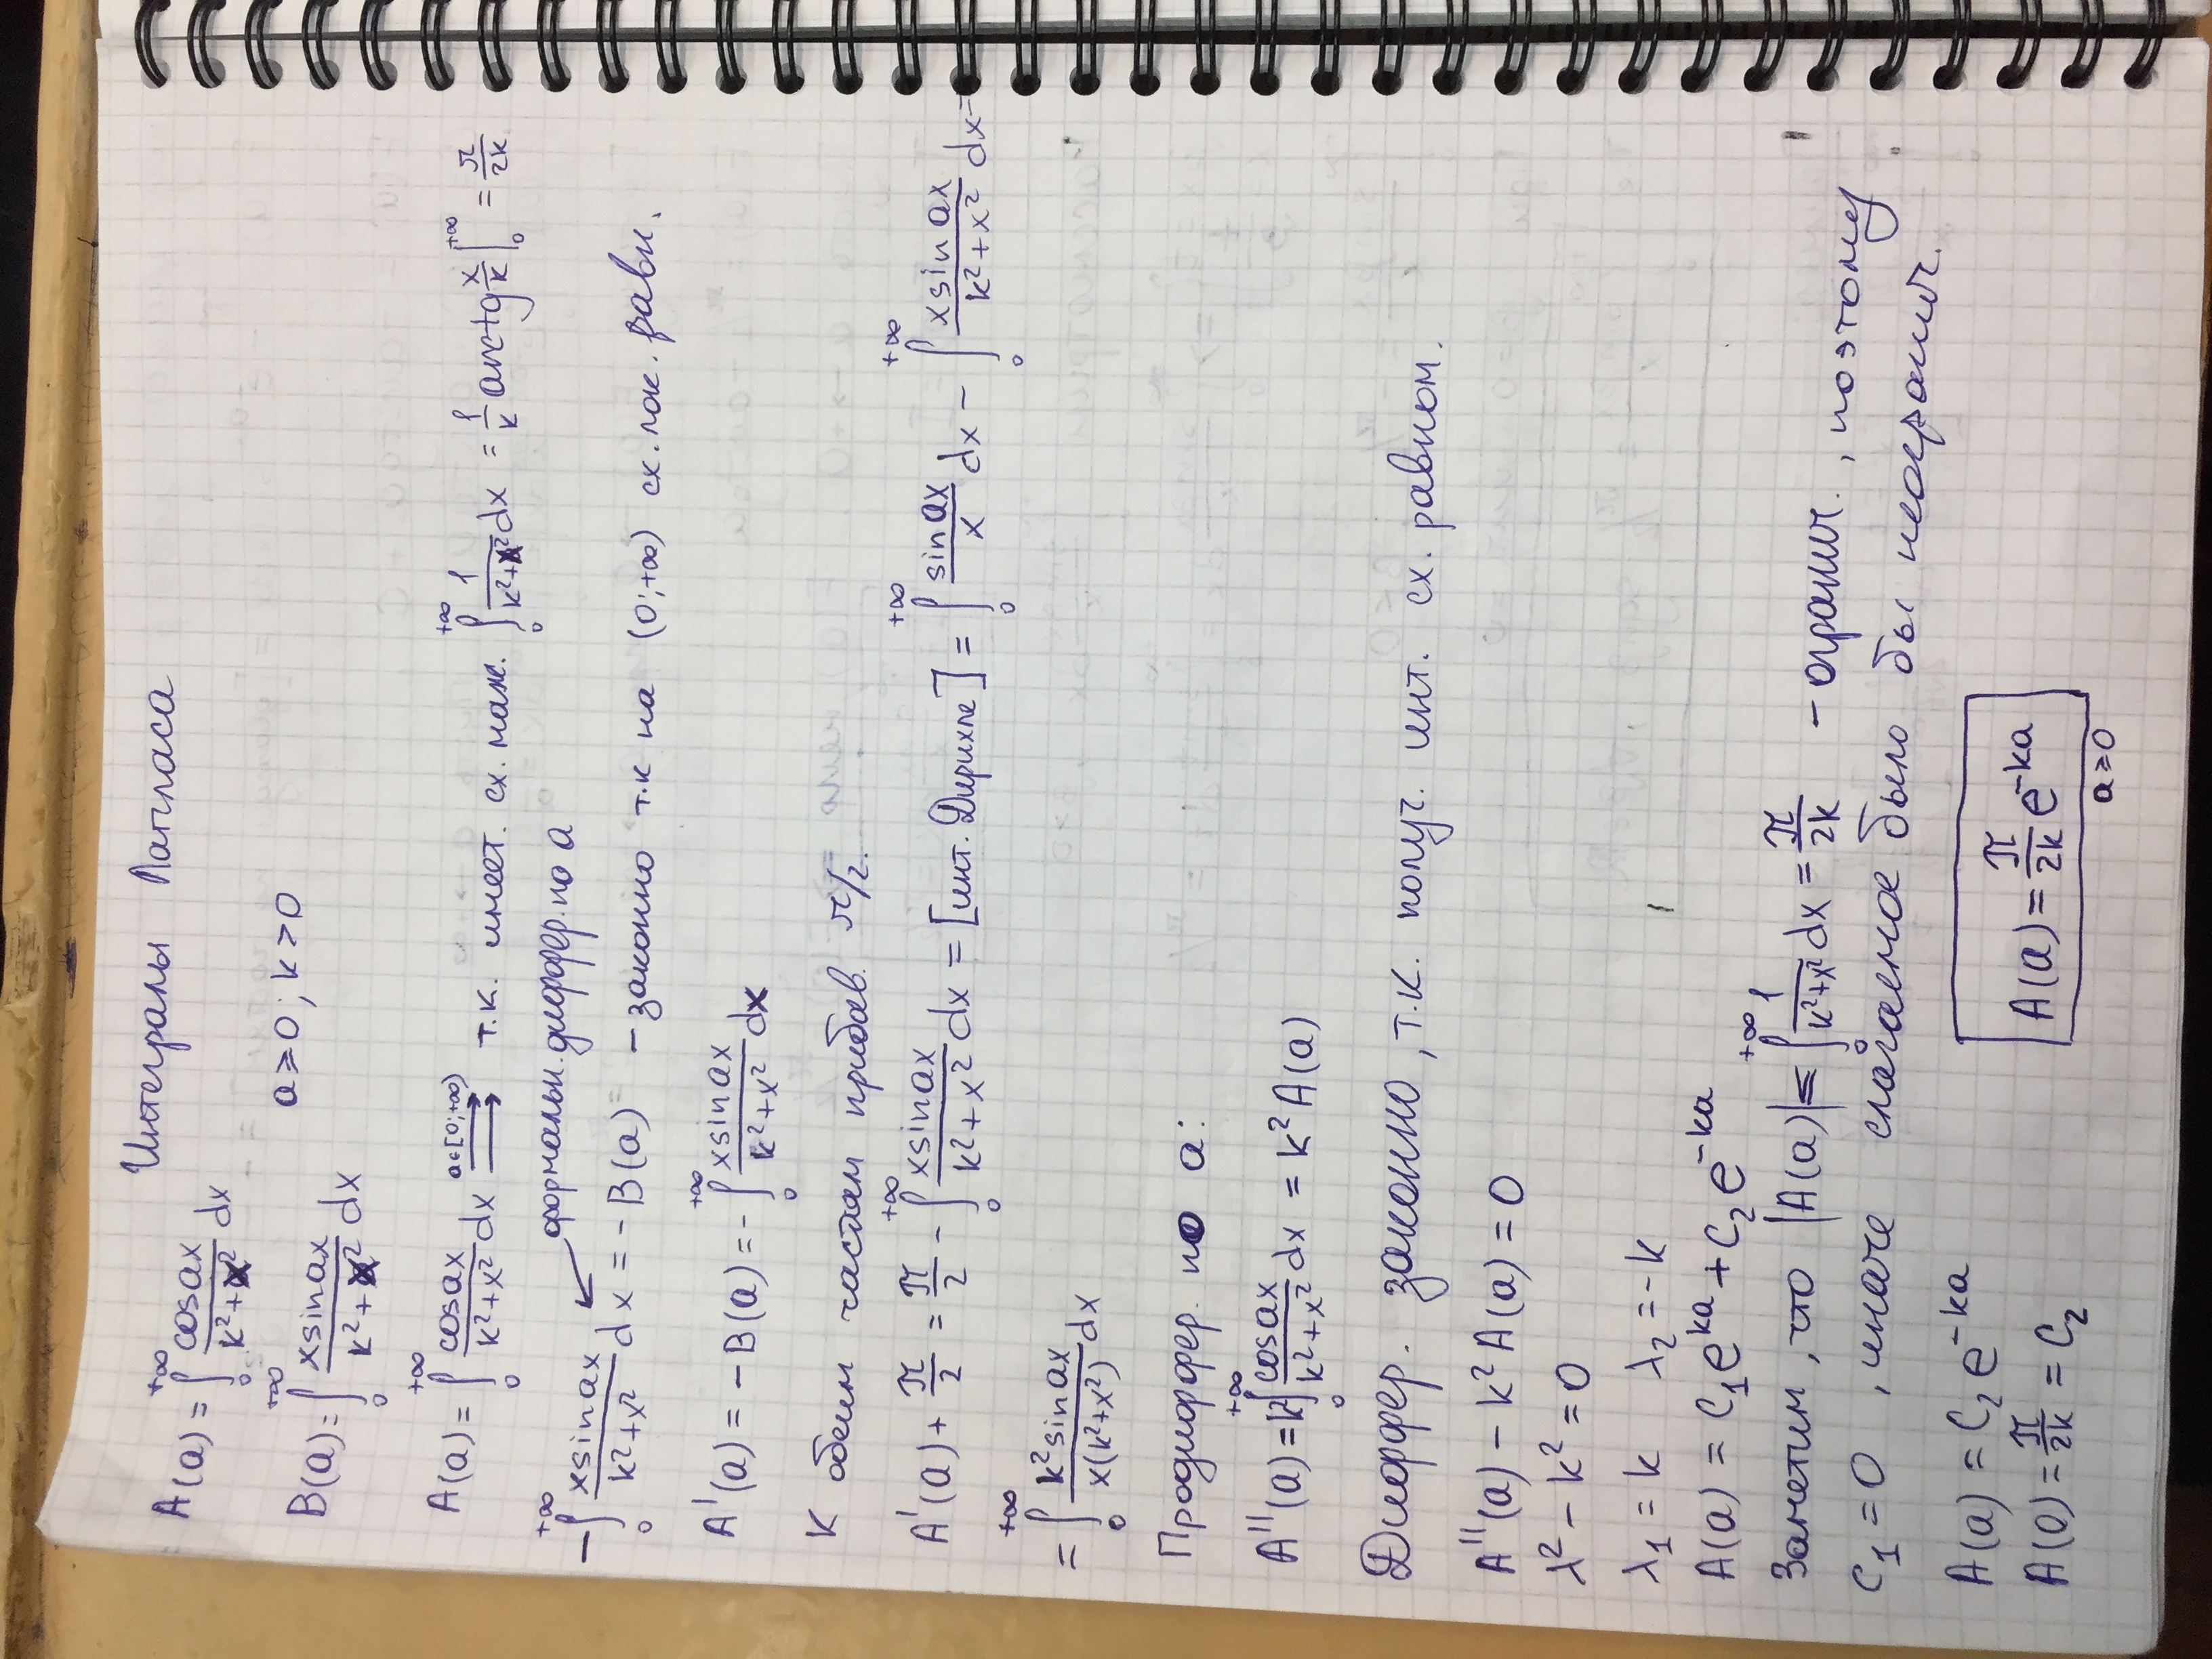 Интегралы Лапласа
A(a) = ∫₀^{+∞} cos ax / (k²+x²) dx
a ≥ 0 ; k > 0
B(a) = ∫₀^{+∞} x sin ax / (k²+x²) dx
A(a) = ∫₀^{+∞} cos ax / (k²+x²) dx ⇉^{a∈[0;+∞)} т.к. имеет. сх. маж. ∫₀^{+∞} 1/(k²+x²) dx = 1/k arctg x/k |₀^{+∞} = π/2k
формальн. диффер. по a
- ∫₀^{+∞} x sin ax / (k²+x²) dx = - B(a) - законно т.к на (0;+∞) сх. лок. равн.
A'(a) = - B(a) = - ∫₀^{+∞} x sin ax / (k²+x²) dx
К обеим частям прибав. π/2.
A'(a) + π/2 = π/2 - ∫₀^{+∞} x sin ax / (k²+x²) dx = [инт. Дирихле] = ∫₀^{+∞} sin ax / x dx - ∫₀^{+∞} x sin ax / (k²+x²) dx =
= ∫₀^{+∞} k² sin ax / x(k²+x²) dx
Продиффер. по a:
A''(a) = k² ∫₀^{+∞} cos ax / (k²+x²) dx = k² A(a)
Диффер. законно, т.к. получ. инт. сх. равном.
A''(a) - k² A(a) = 0
λ² - k² = 0
λ₁ = k λ₂ = -k
A(a) = C₁e^{ka} + C₂e^{-ka}
Заметим, что |A(a)| ≤ ∫₀^{+∞} 1/(k²+x²) dx = π/2k - огранич., поэтому
C₁ = 0, иначе слагаемое было бы неогранич.
A(a) = C₂e^{-ka}
A(0) = π/2k = C₂
A(a) = π/2k e^{-ka}
a ≥ 0